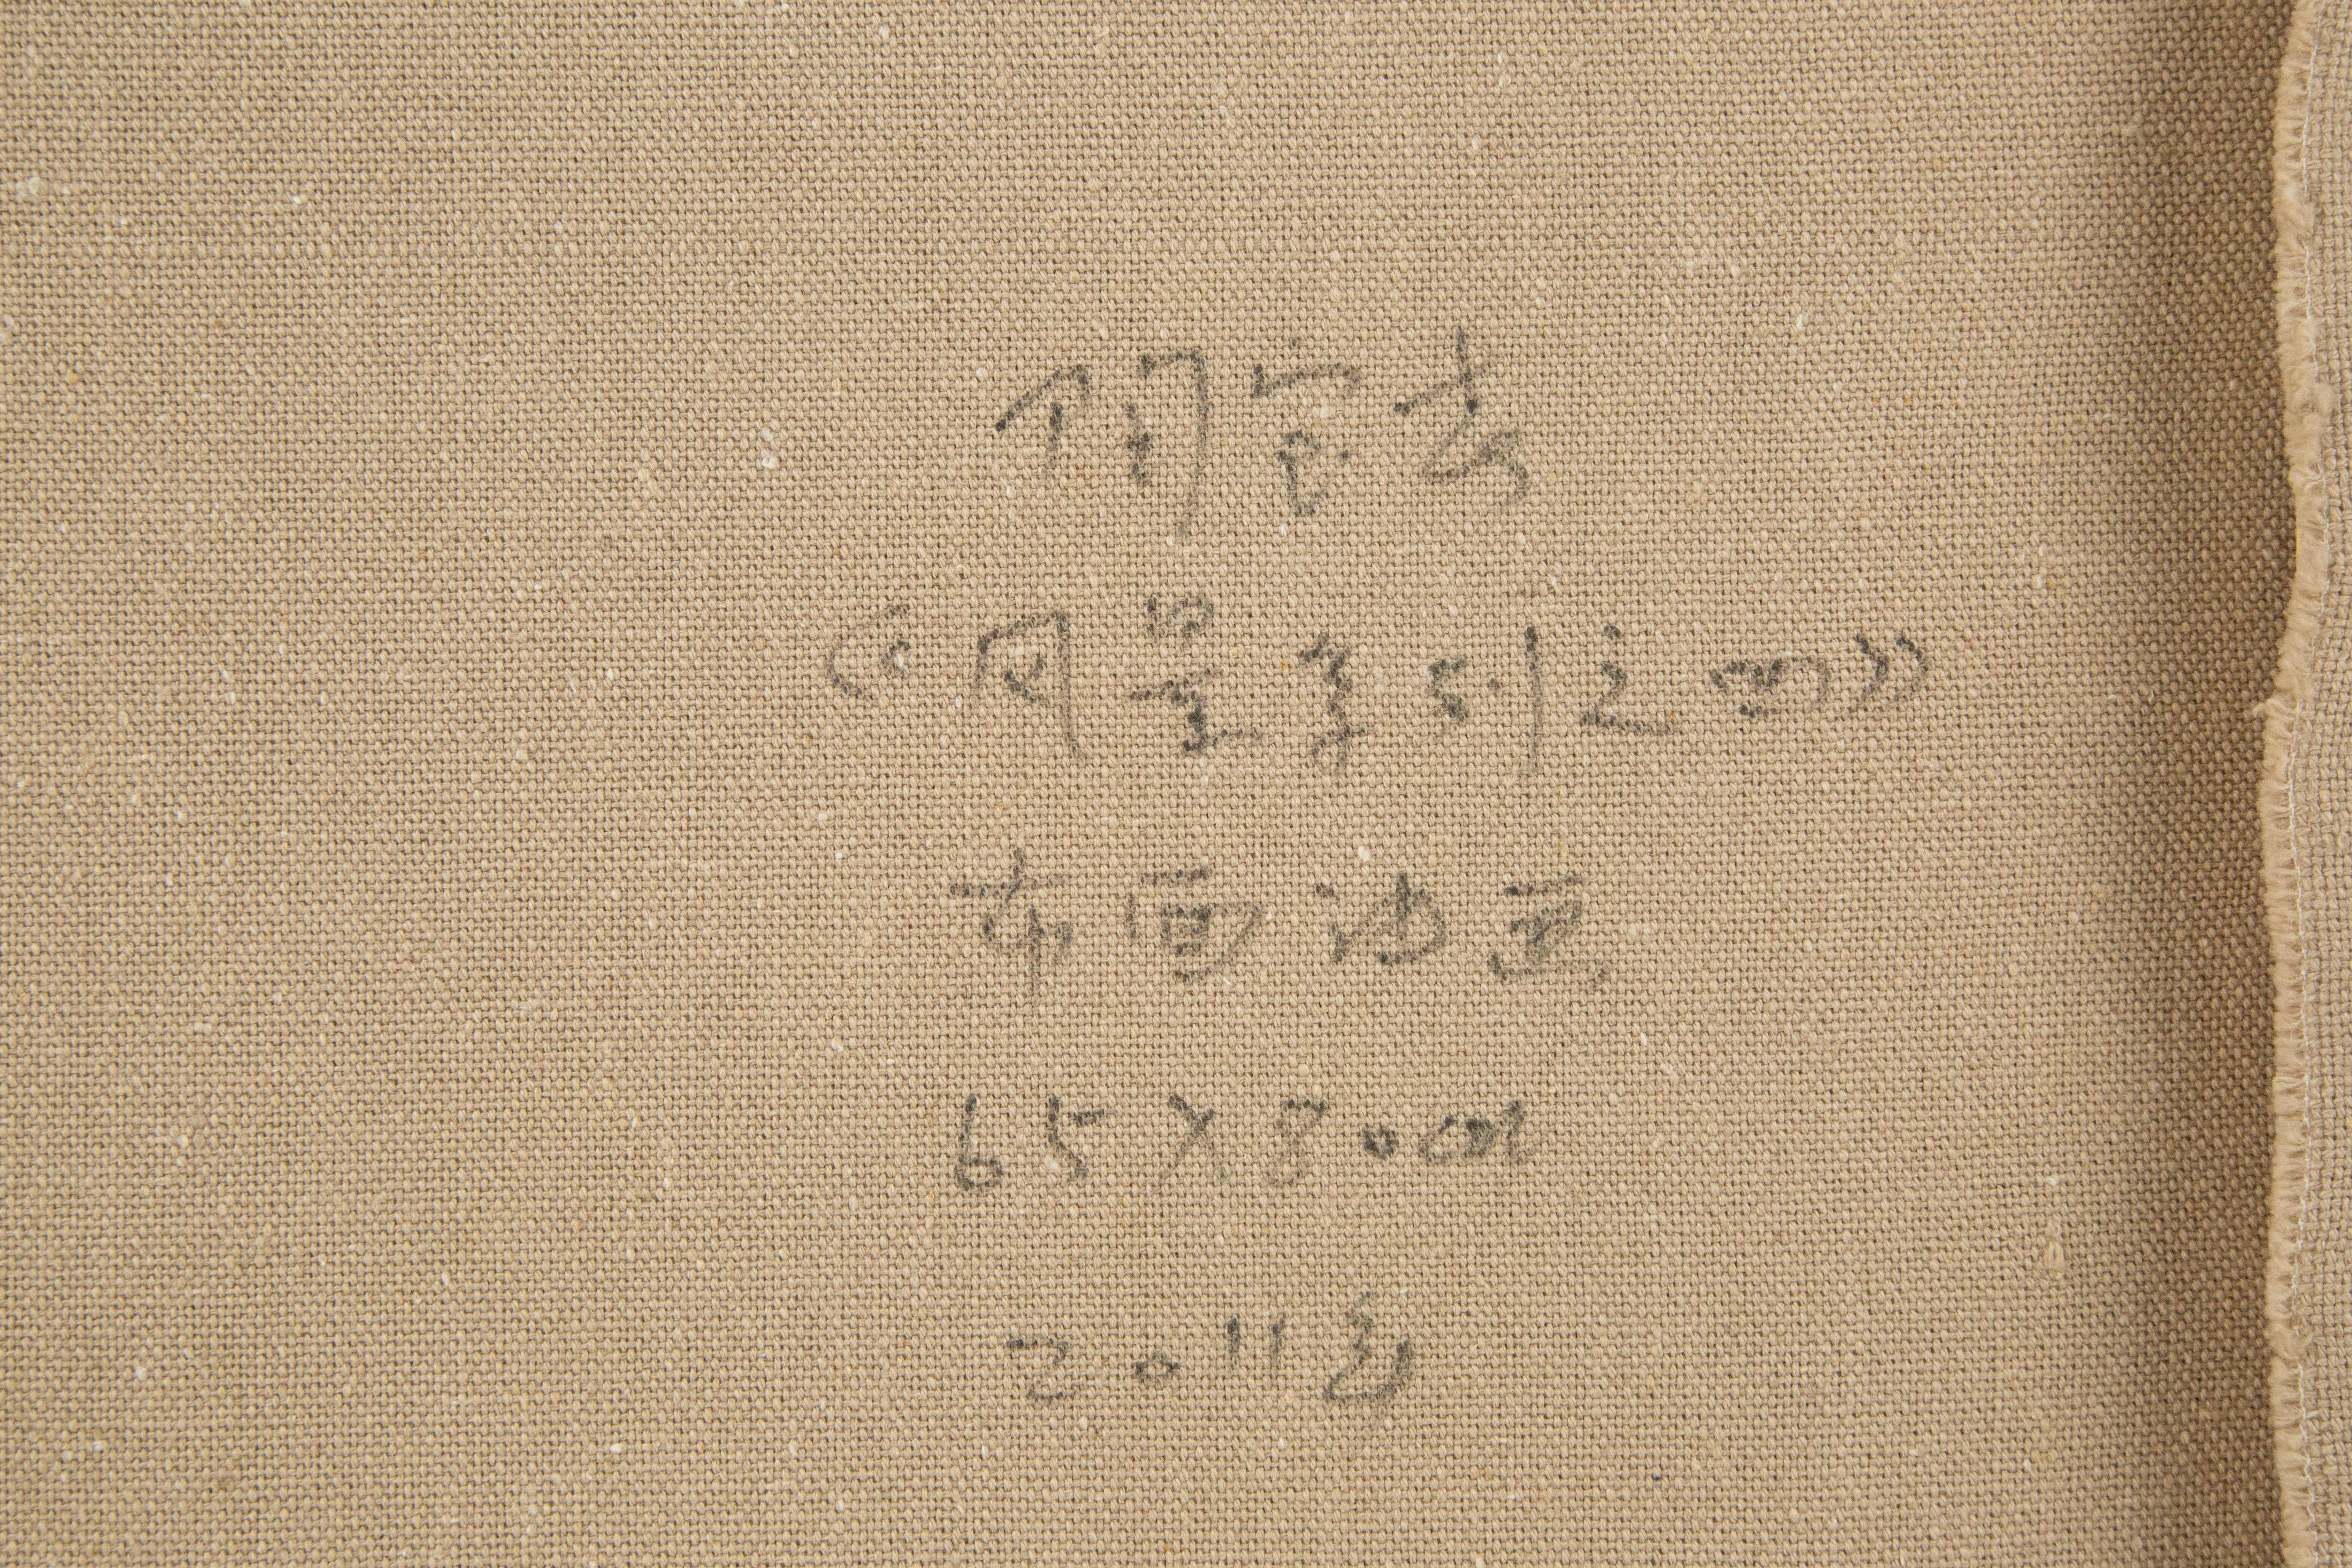 《风景系列之四》
布面油画
65×80cm
2011年